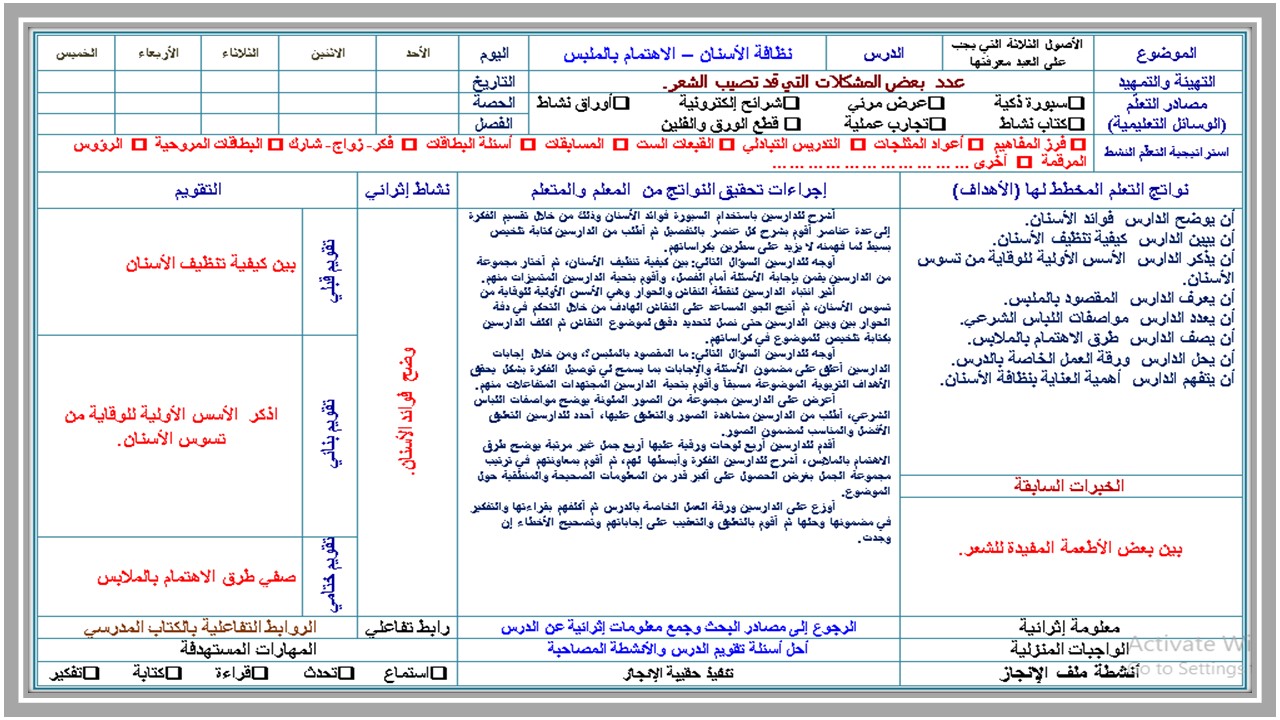 الموضوع
الأصول الثلاثة التي يجب
على العبد معرفتها
الدرس
نظافة الأسنان – الاهتمام بالملبس
اليوم
الأحد
الاثنين
الثلاثاء
الأربعاء
الخميس
التهيئة والتمهيد
عدد بعض المشكلات التي قد تصيب الشعر.
التاريخ
مصادر التعلّم
(الوسائل التعليمية)
☐سبورة ذكية ☐عرض مرئي ☐شرائح إلكترونية ☐أوراق نشاط
☐كتاب نشاط ☐تجارب عملية ☐ قطع الورق والفلين
الحصة
الفصل
استراتيجية التعلّم النشط
☐ فرز المفاهيم ☐ أعواد المثلجات ☐ التدريس التبادلي ☐ القبعات الست ☐ المسابقات ☐ أسئلة البطاقات ☐ فكر- زواج- شارك ☐ البطاقات المروحية ☐ الرؤوس
المرقمة ☐ أخرى ... ... ... ... ... ... ... ... ... ...
نواتج التعلم المخطط لها (الأهداف)
إجراءات تحقيق النواتج من المعلم والمتعلم
نشاط إثرائي
التقويم
أن يوضح الدارس فوائد الأسنان.
أن يبين الدارس كيفية تنظيف الأسنان.
أن يذكر الدارس الأسس الأولية للوقاية من تسوس
الأسنان.
أن يعرف الدارس المقصود بالملبس.
أن يعدد الدارس مواصفات اللباس الشرعي.
أن يصف الدارس طرق الاهتمام بالملابس.
أن يحل الدارس ورقة العمل الخاصة بالدرس.
أن يتفهم الدارس أهمية العناية بنظافة الأسنان.
الخبرات السابقة
بين بعض الأطعمة المفيدة للشعر.
أشرح للدارسين باستخدام السبورة فوائد الأسنان وذلك من خلال تقسيم الفكرة
إلى عدة عناصر أقوم بشرح كل عنصر بالتفصيل ثم أطلب من الدارسين كتابة تلخيص
بسيط لما فهمنه لا يزيد على سطرين بكراساتهم.
أوجه للدارسين السؤال التالي: بين كيفية تنظيف الأسنان، ثم أختار مجموعة
من الدارسين يقمن بإجابة الأسئلة أمام الفصل، وأقوم بتحية الدارسين المتميزات منهم.
أثير انتباه الدارسين لنقطة النقاش والحوار وهي الأسس الأولية للوقاية من
تسوس الأسنان، ثم أتيح الجو المساعد على النقاش الهادف من خلال التحكم في دفة
الحوار بين وبين الدارسين حتى نصل لتحديد دقيق لموضوع النقاش ثم اكلف الدارسين
بكتابة تلخيص للموضوع في كراساتهم.
أوجه للدارسين السؤال التالي: ما المقصود بالملبس؟، ومن خلال إجابات
الدارسين أعلق على مضمون الأسئلة والإجابات بما يسمح لي توصيل الفكرة بشكل يحقق
الأهداف التربوية الموضوعة مسبقاً وأقوم بتحية الدارسين المجتهدات المتفاعلات منهم.
أعرض على الدارسين مجموعة من الصور الملونة يوضح مواصفات اللباس
الشرعي، أطلب من الدارسين مشاهدة الصور والتعليق عليها، أحدد للدارسين التعليق
الأفضل والمناسب لمضمون الصور.
أقدم للدارسين أربع لوحات ورقية عليها أربع جمل غير مرتبة يوضح طرق
الاهتمام بالملابس، أشرح للدارسين الفكرة وأبسطها لهم، ثم أقوم بمعاونتهم في ترتيب
مجموعة الجمل بغرض الحصول على أكبر قدر من المعلومات الصحيحة والمنطقية حول
الموضوع.
أوزع على الدارسين ورقة العمل الخاصة بالدرس ثم أكلفهم بقراءتها والتفكير
في مضمونها وحلها ثم أقوم بالتعليق والتعقيب على إجاباتهم وتصحيح الأخطاء إن
وجدت.
وضح فوائد الأسنان.
تقويم قبلي
بين كيفية تنظيف الأسنان
تقويم بنائي
اذكر الأسس الأولية للوقاية من
تسوس الأسنان.
تقويم ختامي
صفي طرق الاهتمام بالملابس
معلومة إثرائية
الرجوع إلى مصادر البحث وجمع معلومات إثرائية عن الدرس
رابط تفاعلي
الروابط التفاعلية بالكتاب المدرسي
الواجبات المنزلية
أحل أسئلة تقويم الدرس والأنشطة المصاحبة
المهارات المستهدفة
أنشطة ملف الإنجاز
تنفيذ حقيبة الإنجاز
☐استماع ☐تحدث ☐قراءة ☐كتابة ☐تفكير
Activate Wi
Go to Settings